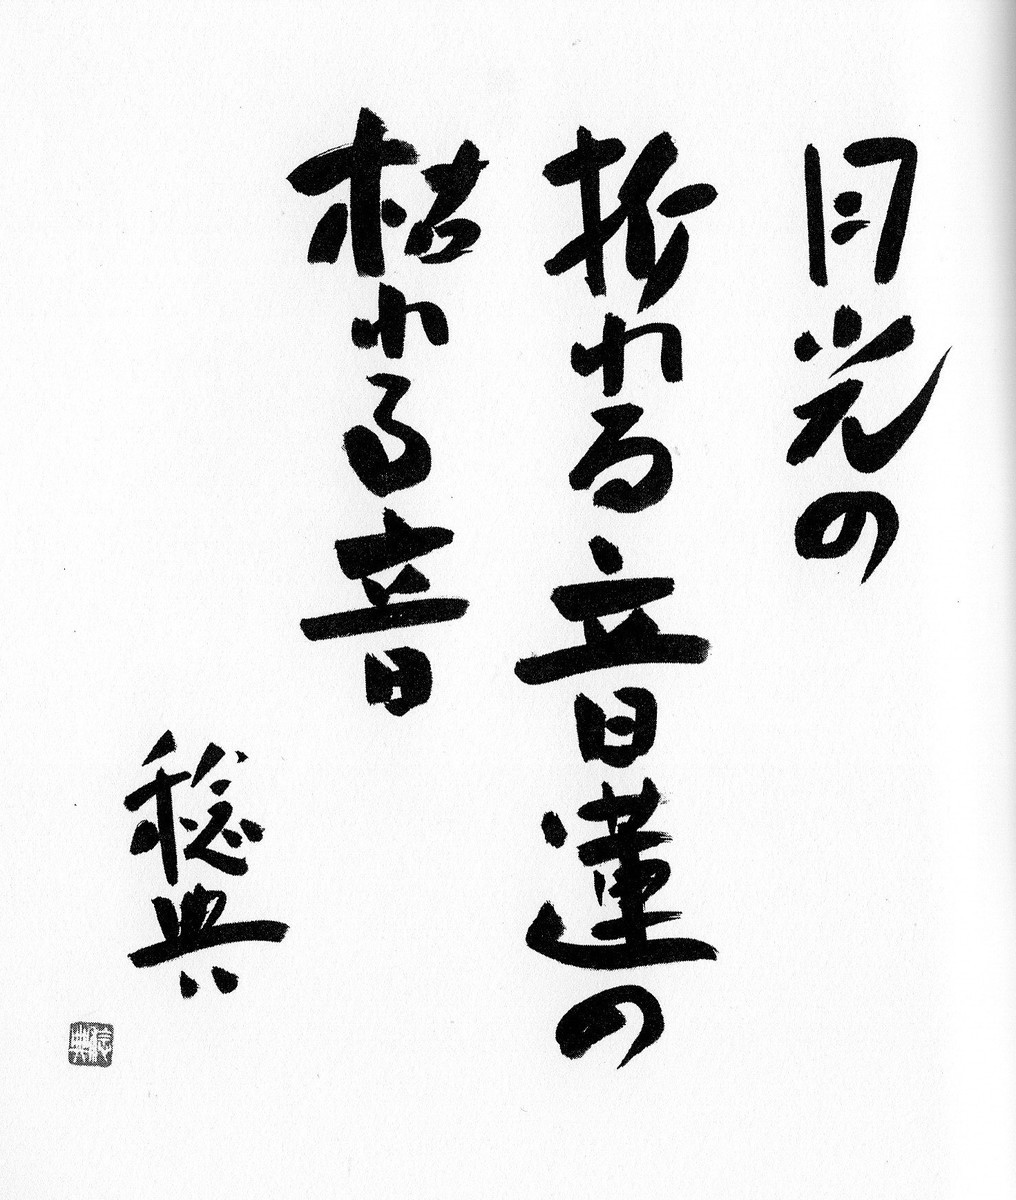 月光の
折れる音蓮の
枯れる音
稔典